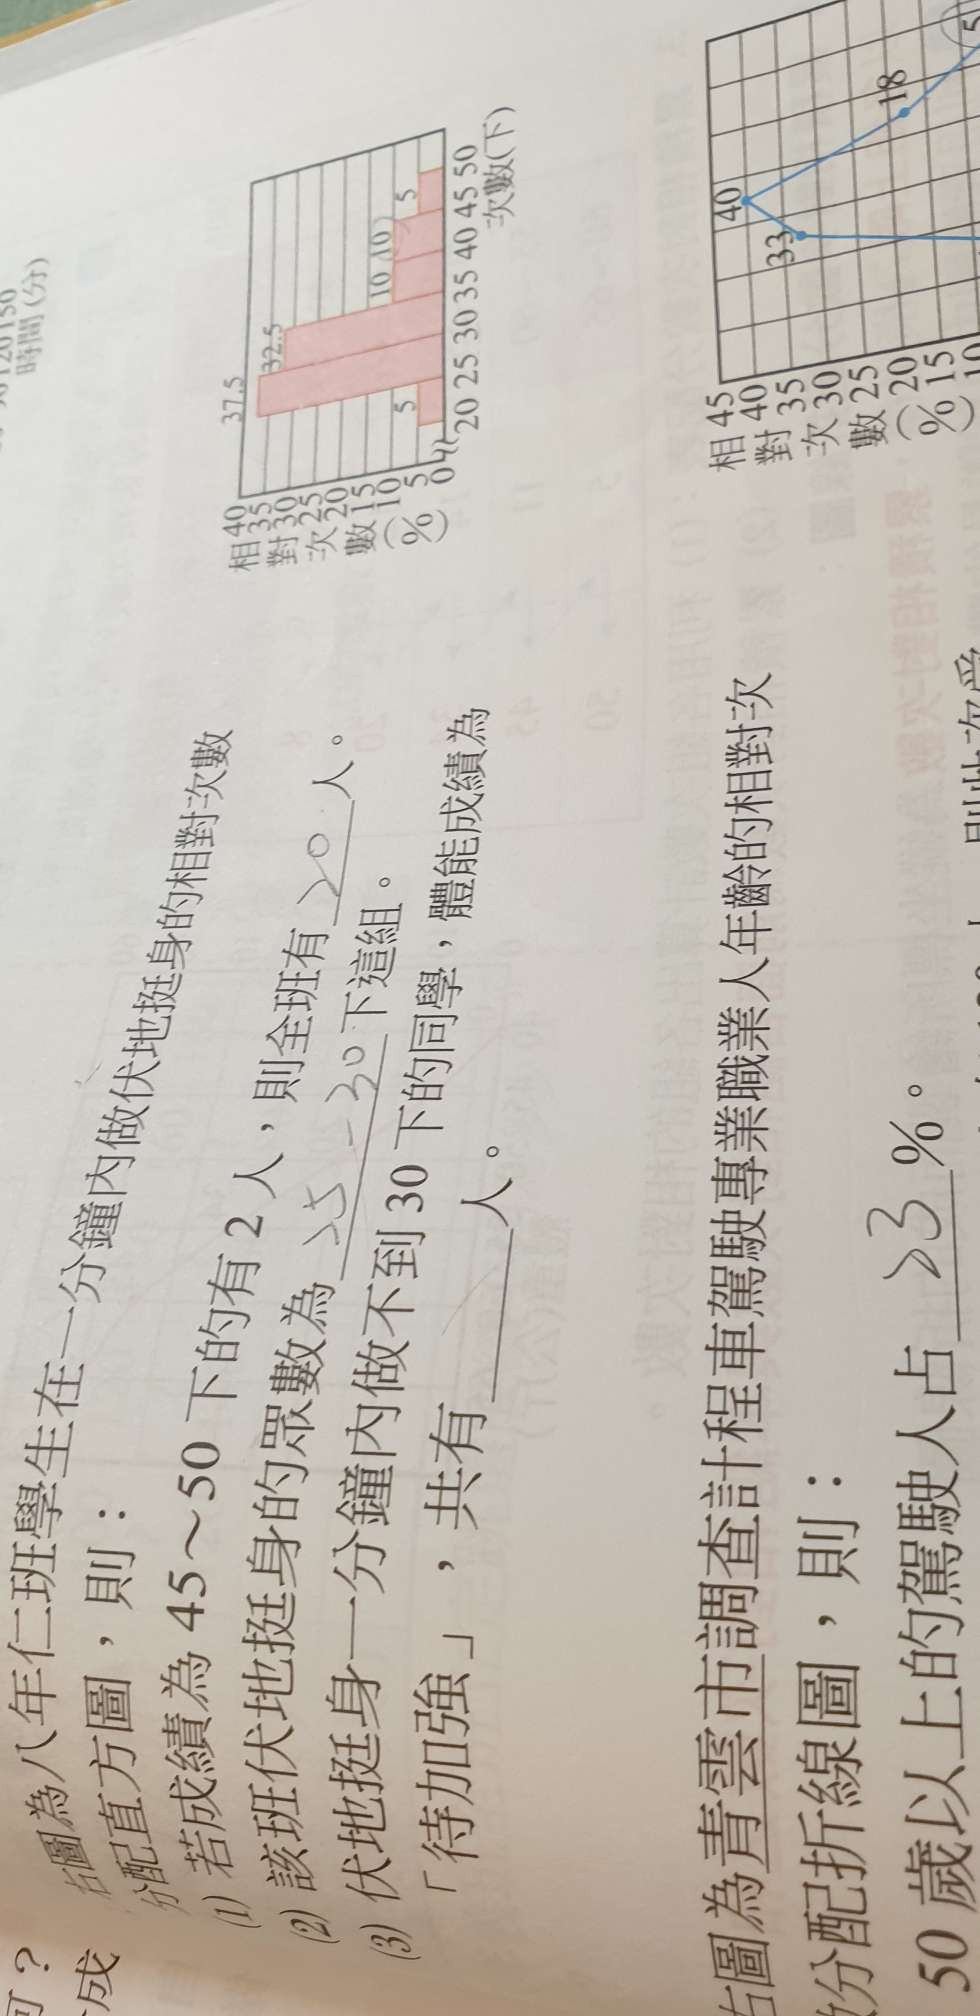 時間(分)
右圖為八年仁班學生在一分鐘內做伏地挺身的相對次數
分配直方圖，則：
(1) 若成績為 45～50 下的有 2 人，則全班有 20 人。
(2) 該班伏地挺身的眾數為 25-30 下這組。
(3) 伏地挺身一分鐘內做不到 30 下的同學，體能成績為
「待加強」，共有 人。
相對次數(%)
40
35
30
25
20
15
10
5
0
37.5
32.5
5
10
10
5
20 25 30 35 40 45 50
次數(下)
右圖為青雲市調查計程車駕駛專業職業人年齡的相對次
數分配折線圖，則：
50 歲以上的駕駛人占 23 %。
相對次數(%)
45
40
35
30
25
20
15
10
33
40
18
5